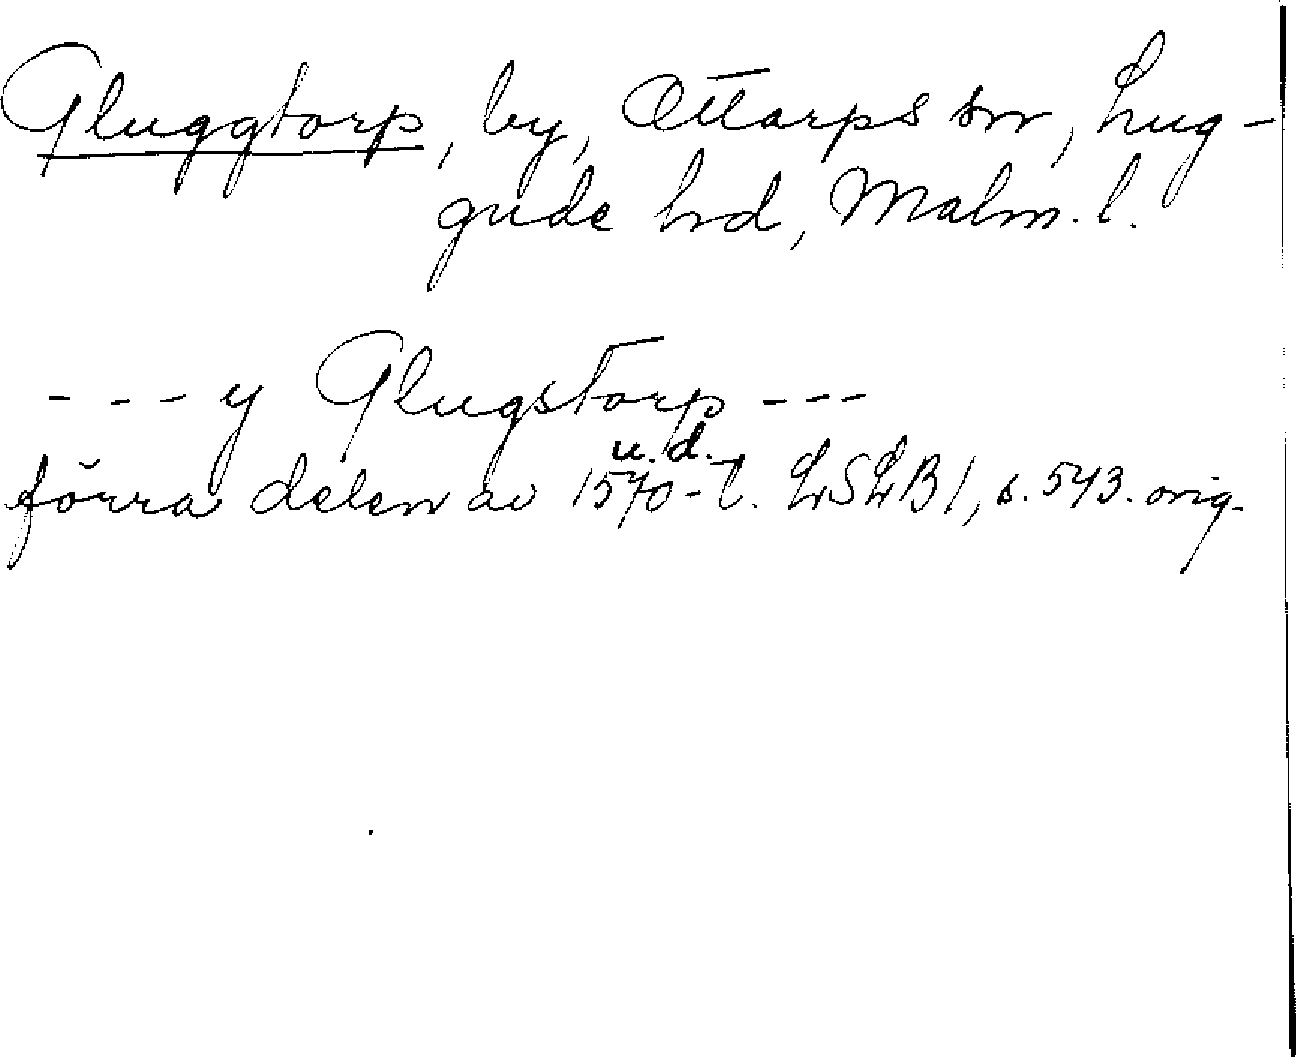 Gluggtorp, by, Ottarps sn, Lug-
gude hd, Malm. l.
- - - y Glugstorp - - -
u. d.
förra delen av 1570-t. LSLB 1, s. 543. orig.